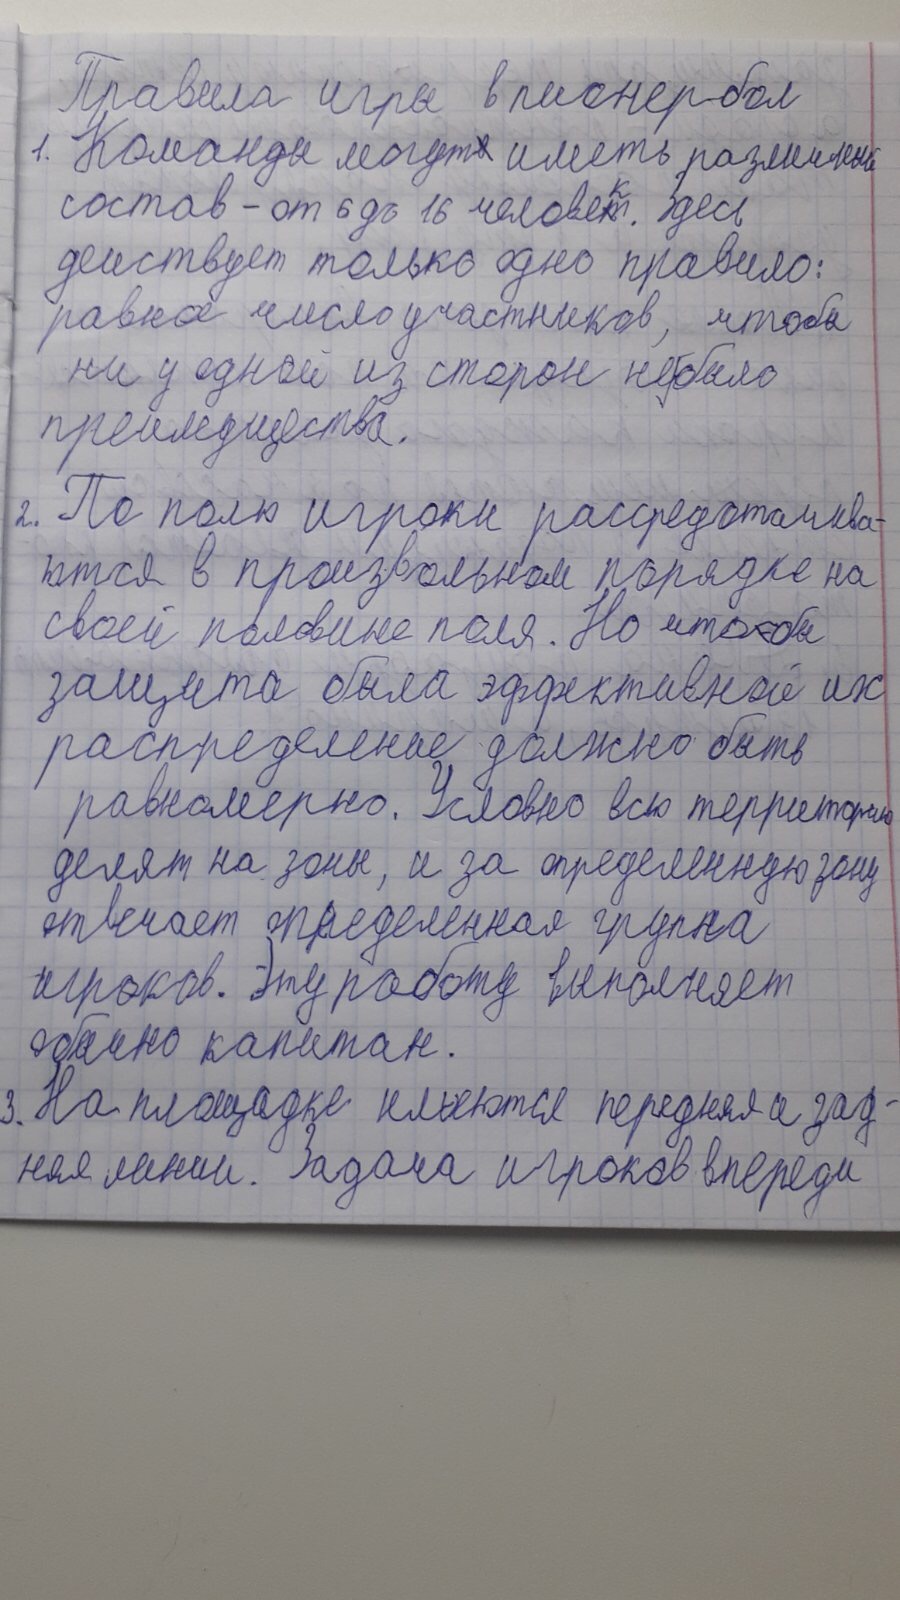 Правила игры в пионер-бол
1. Команды могут иметь различный
состав - от 6 до 16 человек. Здесь
действует только одно правило:
равное число участников, чтобы
ни у одной из сторон не было
преимущества.
2. По полю игроки рассредотачива-
ются в произвольном порядке на
своей половине поля. Но чтобы
защита была эффективной их
распределение должно быть
равномерно. Условно всю территорию
делят на зоны, и за определенную зону
отвечает определенная группа
игроков. Эту работу выполняет
обычно капитан.
3. На площадке имеются передняя и зад-
няя линии. Задача игроков впереди